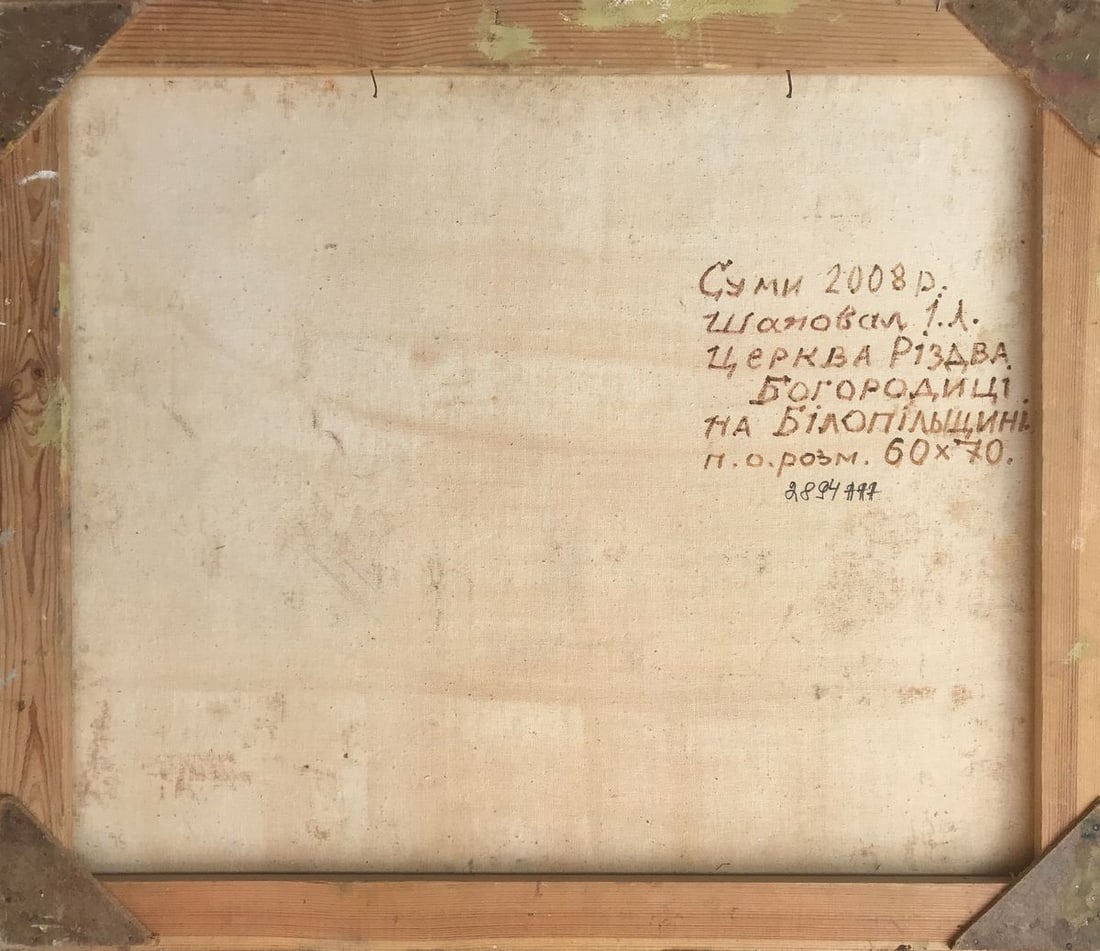 Суми 2008р.
Шаповал І.Л.
Церква Різдва
Богородиці
на Білопільщині
п.о.розм. 60х70.